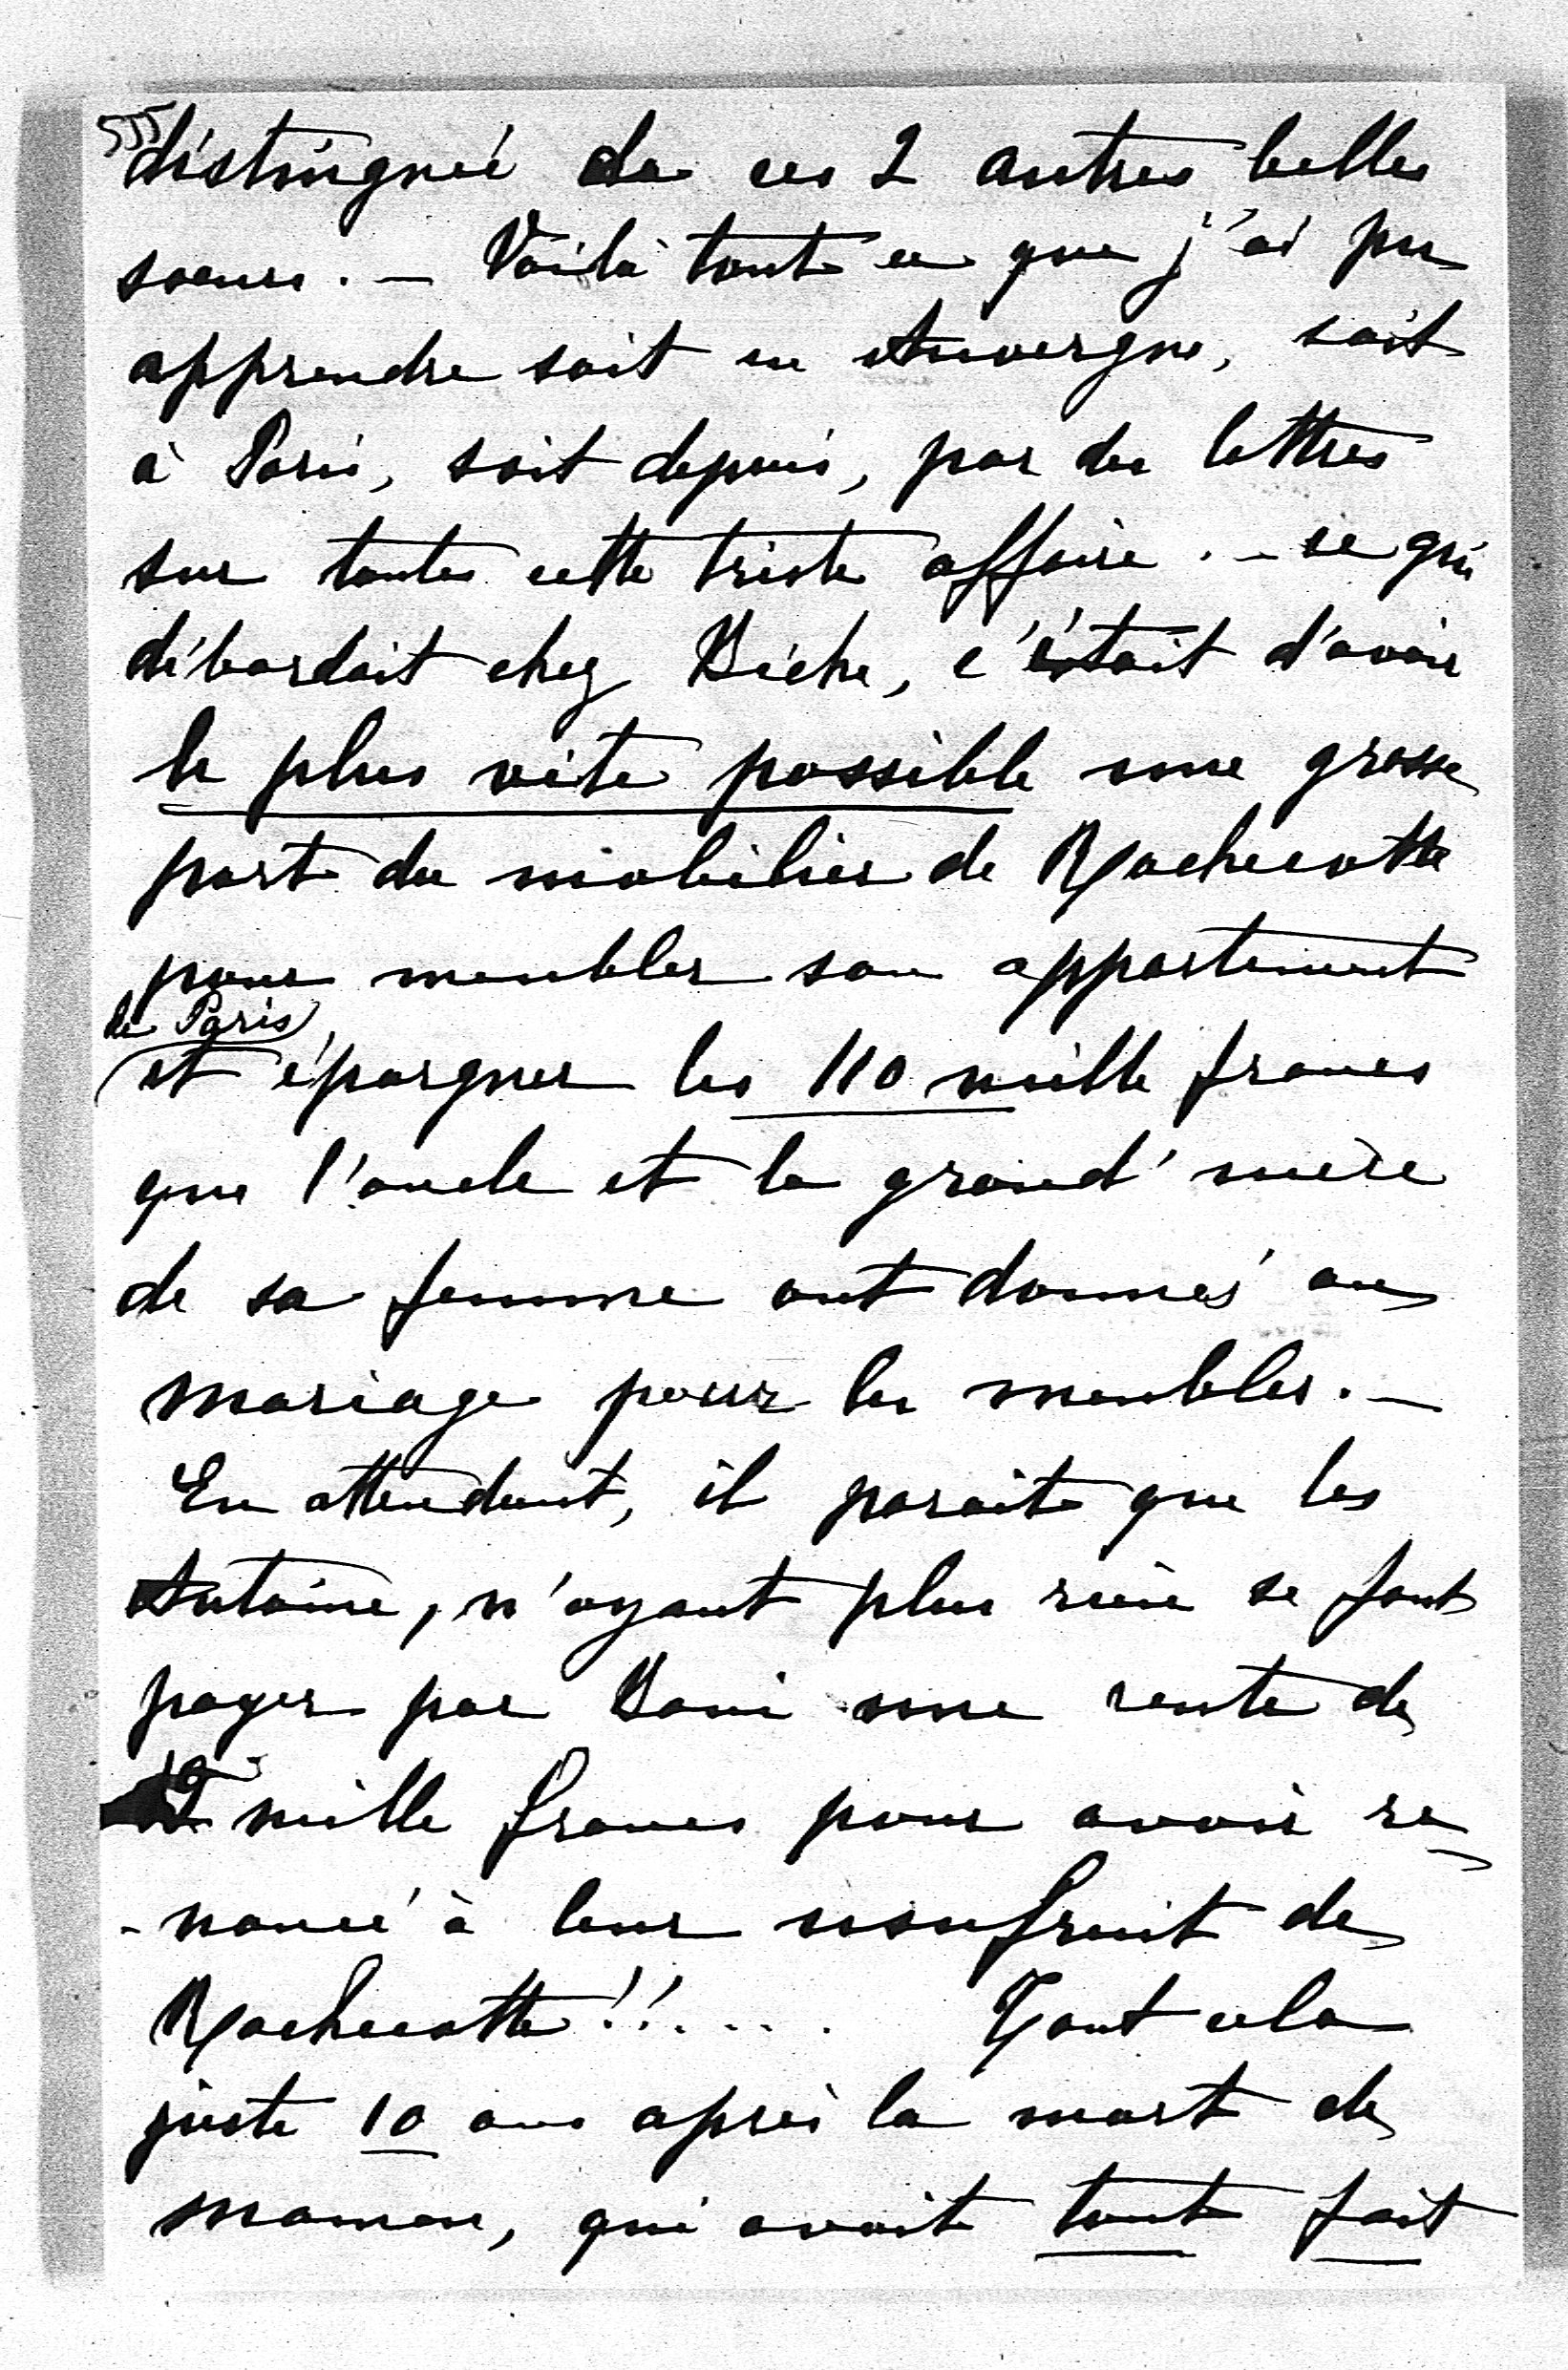 555
distinguée de ces 2 autres belles
soeurs. — Voilà tout ce que j'ai pu
apprendre soit en Auvergne, soit
à Paris, soit depuis, par des lettres
sur toute cette triste affaire. — ce qui
débordait chez Biche, c'était d'avoir
le plus vite possible une grosse
part du mobilier de Rochecotte
pour meubler son appartement
de Paris,
et épargner les 110 mille francs
que l'oncle et la grand'mère
de sa femme ont donnés au
mariage pour les meubles. —
En attendant, il parait que les
Antoine, n'ayant plus rien se font
payer par Boni une rente de
mille francs pour avoir re
-noncé à leur usufruit de
Rochecotte!!..... Tout cela
juste 10 ans après la mort de
maman, qui avait tout fait